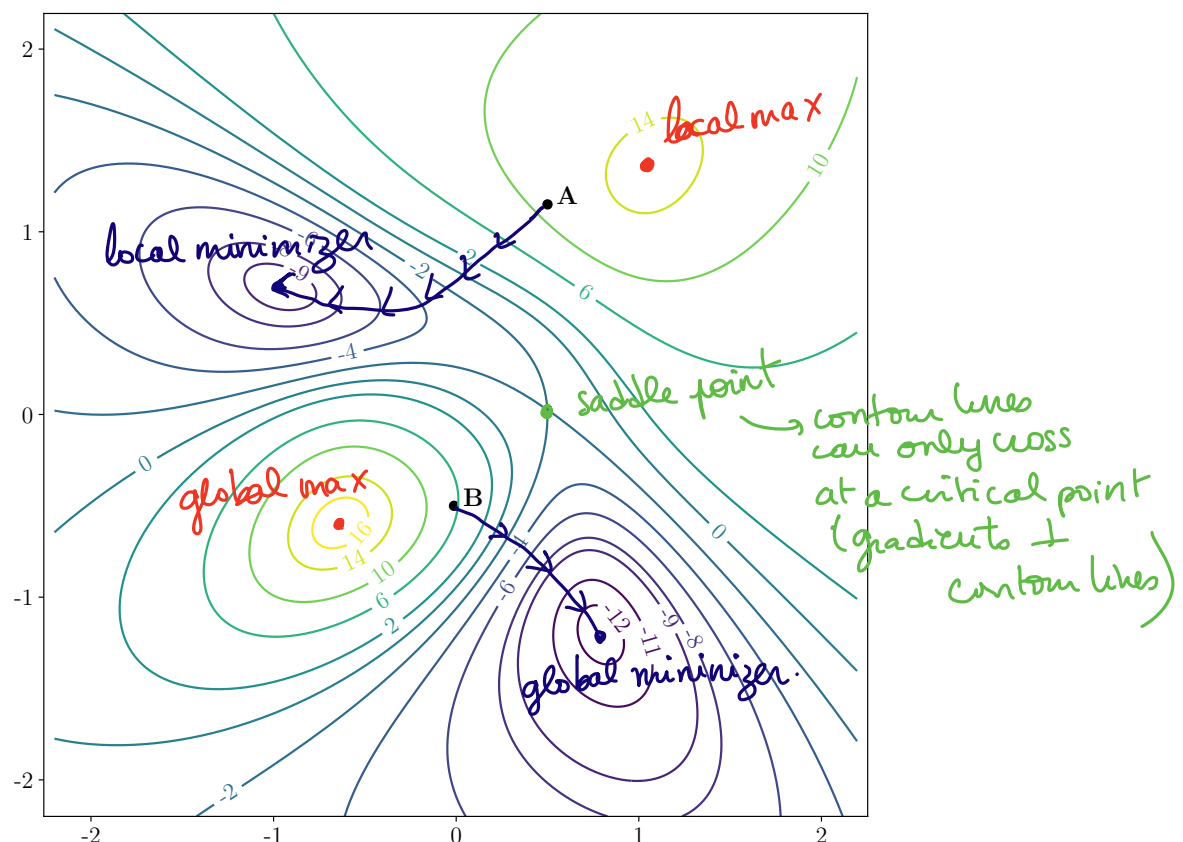 2
14
local max
10
A
1
local minimizer
-8
-6
-9
-2
2
6
-4
saddle point
contour lines
can only cross
at a critical point
(gradients ⊥
contour lines)
0
0
0
global max
B
16
14
10
-4
6
2
-6
-1
-12
-11
-9
-8
global mininizer.
-2
-2
-2
-1
0
1
2